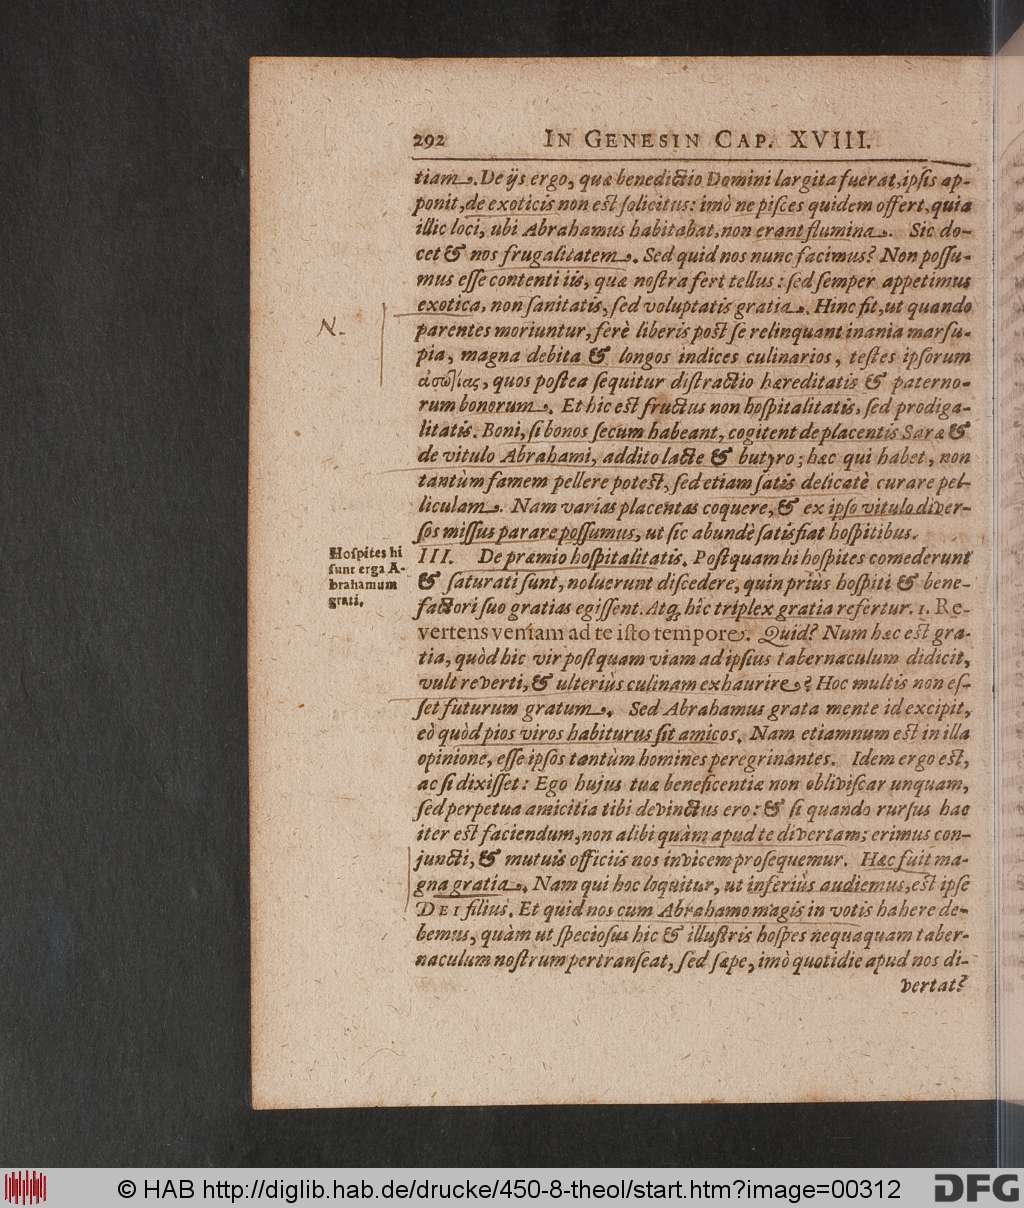 292 IN GENESIN CAP. XVIII.
tiam. De ijs ergo, quæ benedictio Domini largita fuerat, ipsis ap-
ponit, de exoticis non est solicitus: imò ne pisces quidem offert, quia
illic loci, ubi Abrahamus habitabat, non erant flumina. Sic do-
cet & nos frugalitatem. Sed quid nos nunc facimus? Non possu-
mus esse contenti iis, quæ nostra fert tellus: sed semper appetimus
exotica, non sanitatis, sed voluptatis gratia. Hinc fit, ut quando
N.
parentes moriuntur, ferè liberis post se relinquant inania marsu-
pia, magna debita & longos indices culinarios, testes ipsorum
ἀσωτίας, quos postea sequitur distractio hæreditatis & paterno-
rum bonorum. Et hic est fructus non hospitalitatis, sed prodiga-
litatis. Boni, si bonos secum habeant, cogitent de placentis Saræ &
de vitulo Abrahami, addito lacte & butyro; hæc qui habet, non
tantùm famem pellere potest, sed etiam satis delicatè curare pel-
liculam. Nam varias placentas coquere, & ex ipso vitulo diver-
sos missus parare possumus, ut sic abundè satisfiat hospitibus.
Hospites hi
sunt erga A-
brahamum
grati.
III. De præmio hospitalitatis. Postquam hi hospites comederunt
& saturati sunt, noluerunt discedere, quin priùs hospiti & bene-
factori suo gratias egissent. Atq; hîc triplex gratia refertur. 1. Re-
vertens veniam ad te isto tempore. Quid? Num hæc est gra-
tia, quòd hic vir postquam viam ad ipsius tabernaculum didicit,
vult reverti, & ulteriùs culinam exhaurire? Hoc multis non es-
set futurum gratum. Sed Abrahamus grata mente id excipit,
eò quòd pios viros habiturus sit amicos. Nam etiamnum est in illa
opinione, esse ipsos tantùm homines peregrinantes. Idem ergo est,
ac si dixisset: Ego hujus tuæ beneficentiæ non obliviscar unquam,
sed perpetua amicitia tibi devinctus ero: & si quando rursus hac
iter est faciendum, non alibi quàm apud te divertam; erimus con-
juncti, & mutuis officiis nos invicem prosequemur. Hæc fuit ma-
gna gratia. Nam qui hoc loquitur, ut inferiùs audiemus, est ipse
DEI filius. Et quid nos cum Abrahamo magis in votis habere de-
bemus, quàm ut speciosus hic & illustris hospes nequaquam taber-
naculum nostrum pertranseat, sed sæpe, imò quotidie apud nos di-
vertat?
© HAB http://diglib.hab.de/drucke/450-8-theol/start.htm?image=00312
DFG